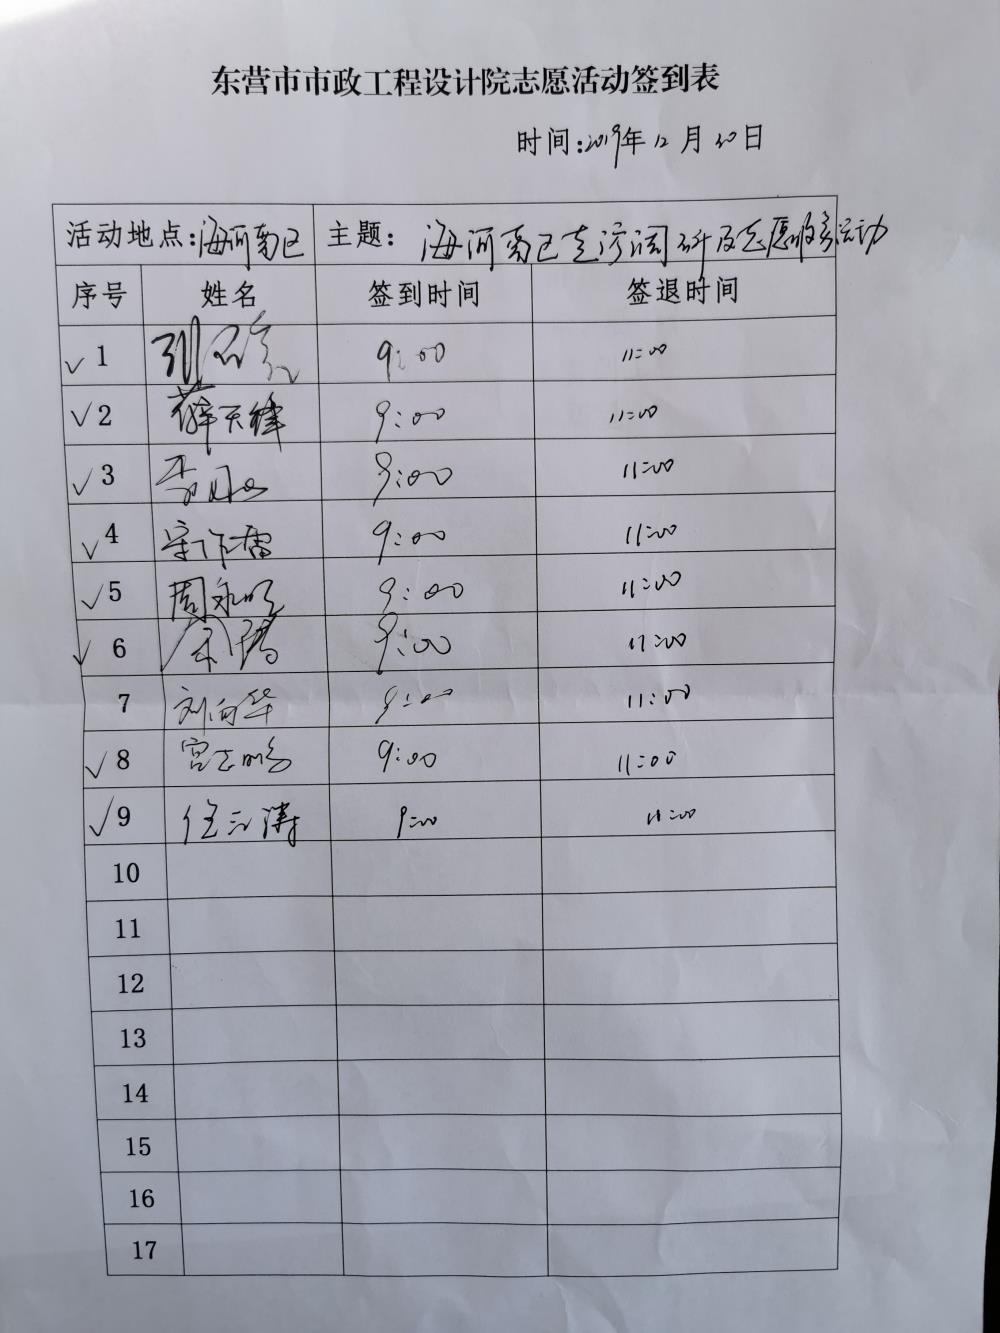 东营市市政工程设计院志愿活动签到表
时间:2019年12月20日
活动地点:海河南区 主题: 海河南区走访调研及志愿服务活动
序号 姓名 签到时间 签退时间
√1 9:00 11:00
√2 薛天锋 9:00 11:00
√3 9:00 11:00
√4 宋作雷 9:00 11:00
√5 周永明 9:00 11:00
√6 9:00 11:00
7 刘向华 9:00 11:00
√8 宫志明 9:00 11:00
√9 任云涛 9:00 11:00
10
11
12
13
14
15
16
17